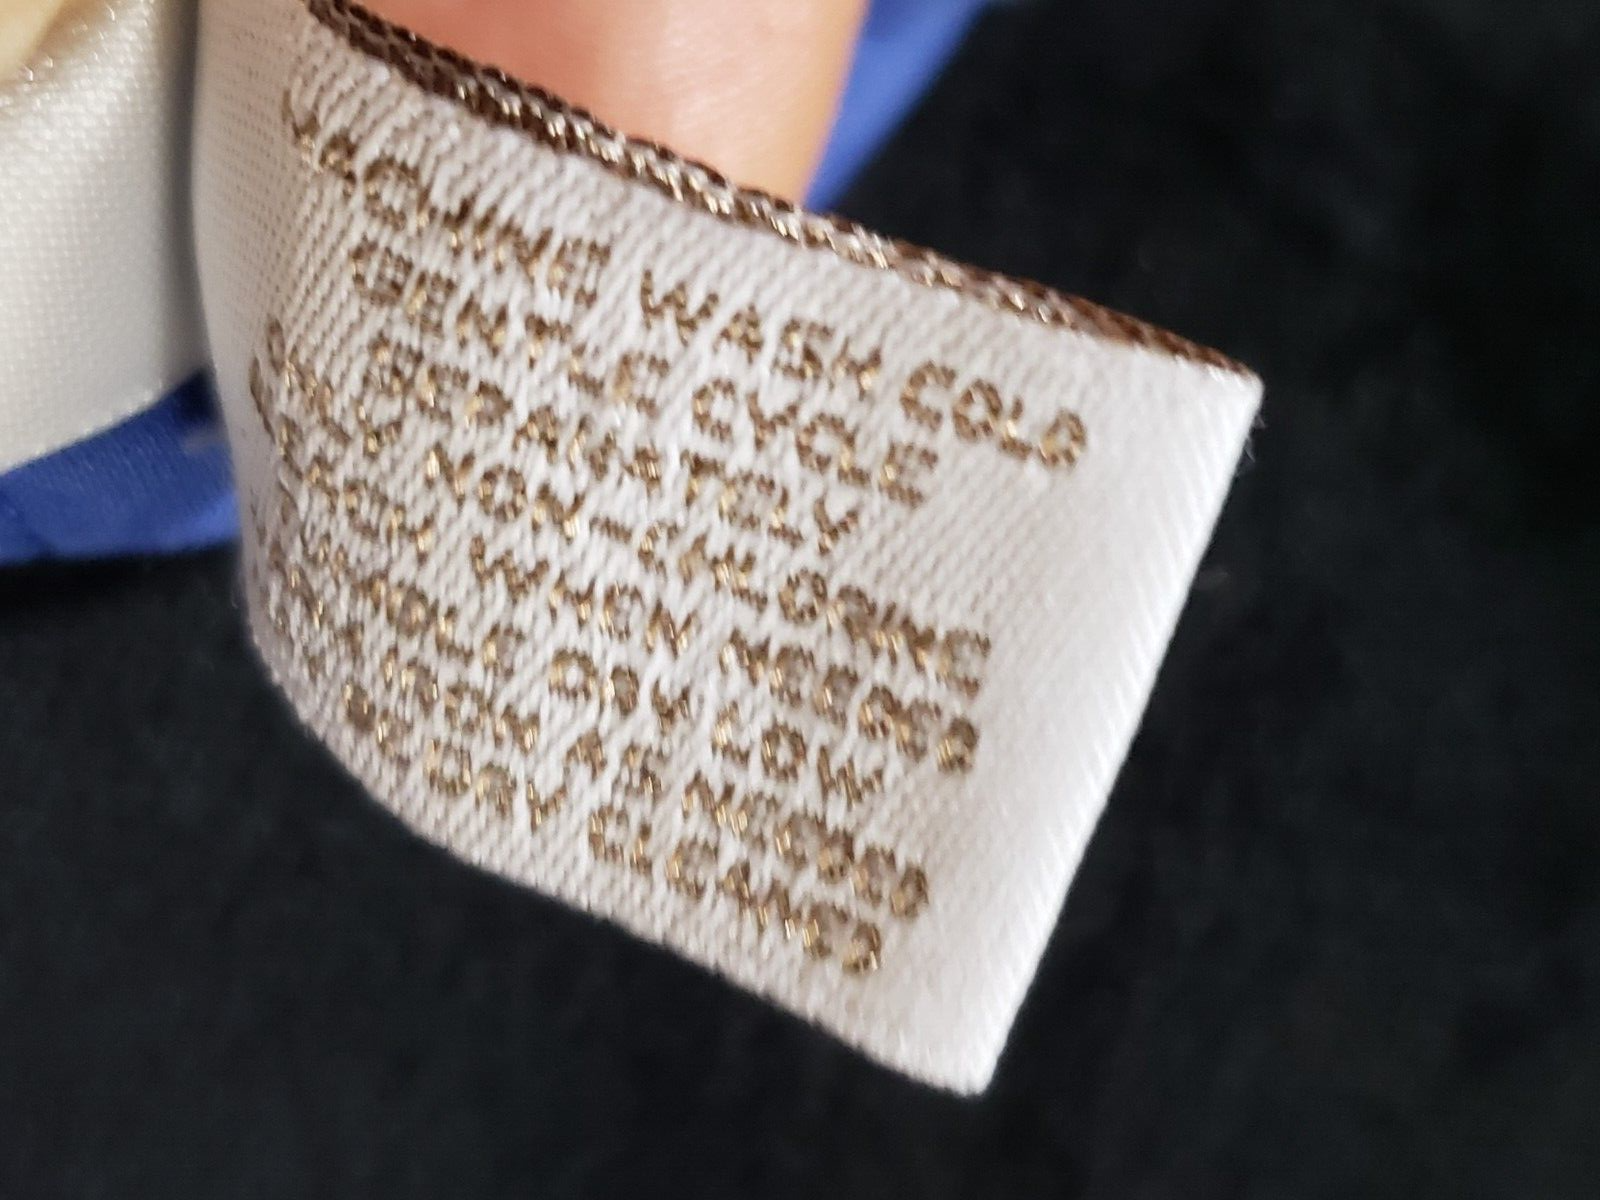 MACHINE WASH COLD
GENTLE CYCLE
SEPARATELY
ONLY NON-CHLORINE
BLEACH WHEN NEEDED
TUMBLE DRY LOW
IRON AS NEEDED
OR DRY CLEANED